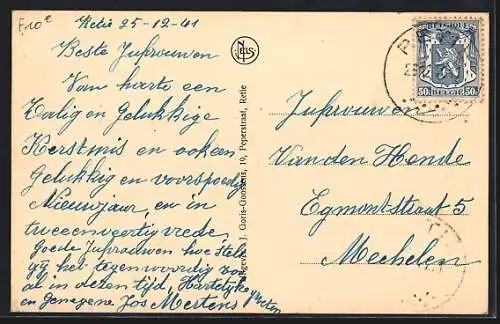 Fr 10 c
Retie 25-12-41
Beste Jufrouwen
Van harte een
Zalig en Gelukkige
Kerstmis en ook een
Gelukkig en voorspoedig
Nieuwjaar, en in
tweeenveertig vrede,
Goede Jufrouwen hoe stelt
gij het tegenwoordig voor
al in dezen tijd, Hartelijke
en Genegene Jos Mertens
groeten
NELS
Uitgever J. Goris-Goossens, 10, Peperstraat, Retie
BELGIQUE
50c BELGIE 50c
Jufrouwen
Van den Hende
Egmontstraat 5
Mechelen